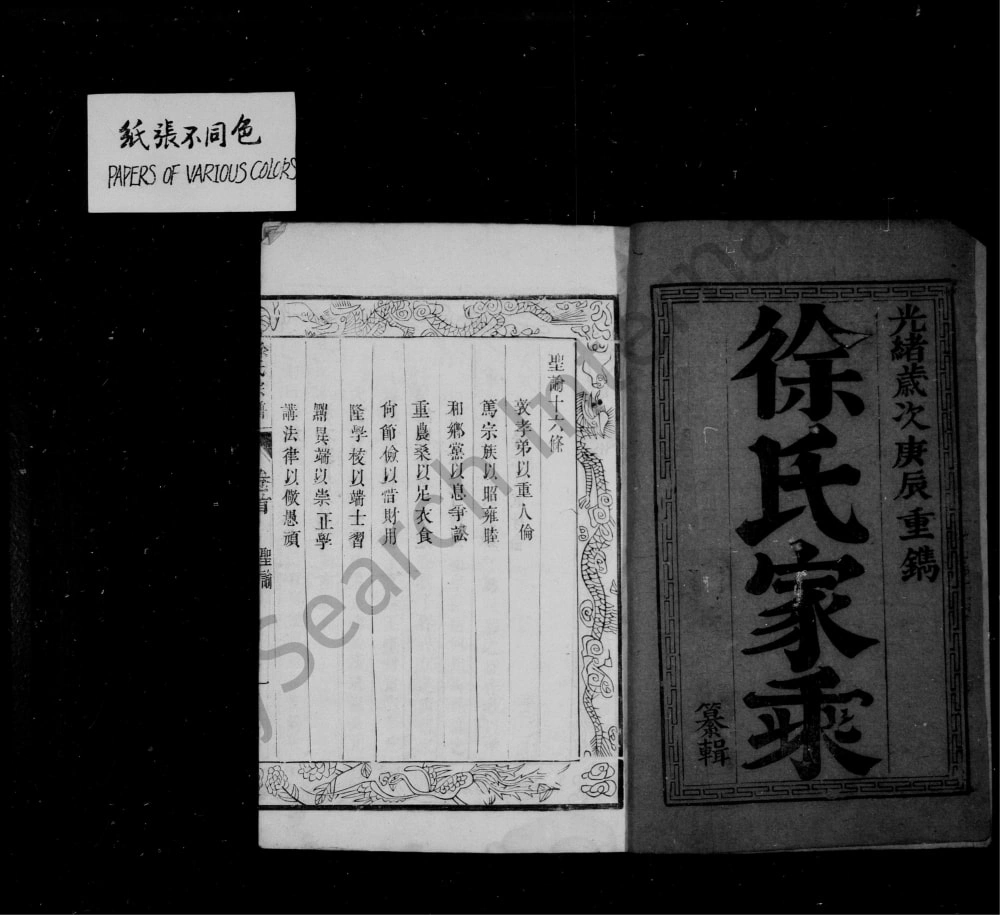 紙張不同色
PAPERS OF VARIOUS COLORS
光緒歲次庚辰重鐫
徐氏家乘
纂輯
聖諭十六條
敦孝弟以重人倫
篤宗族以昭雍睦
和鄉黨以息爭訟
重農桑以足衣食
尚節儉以惜財用
隆學校以端士習
黜異端以崇正學
講法律以儆愚頑
卷首 聖諭 一
Search Interna